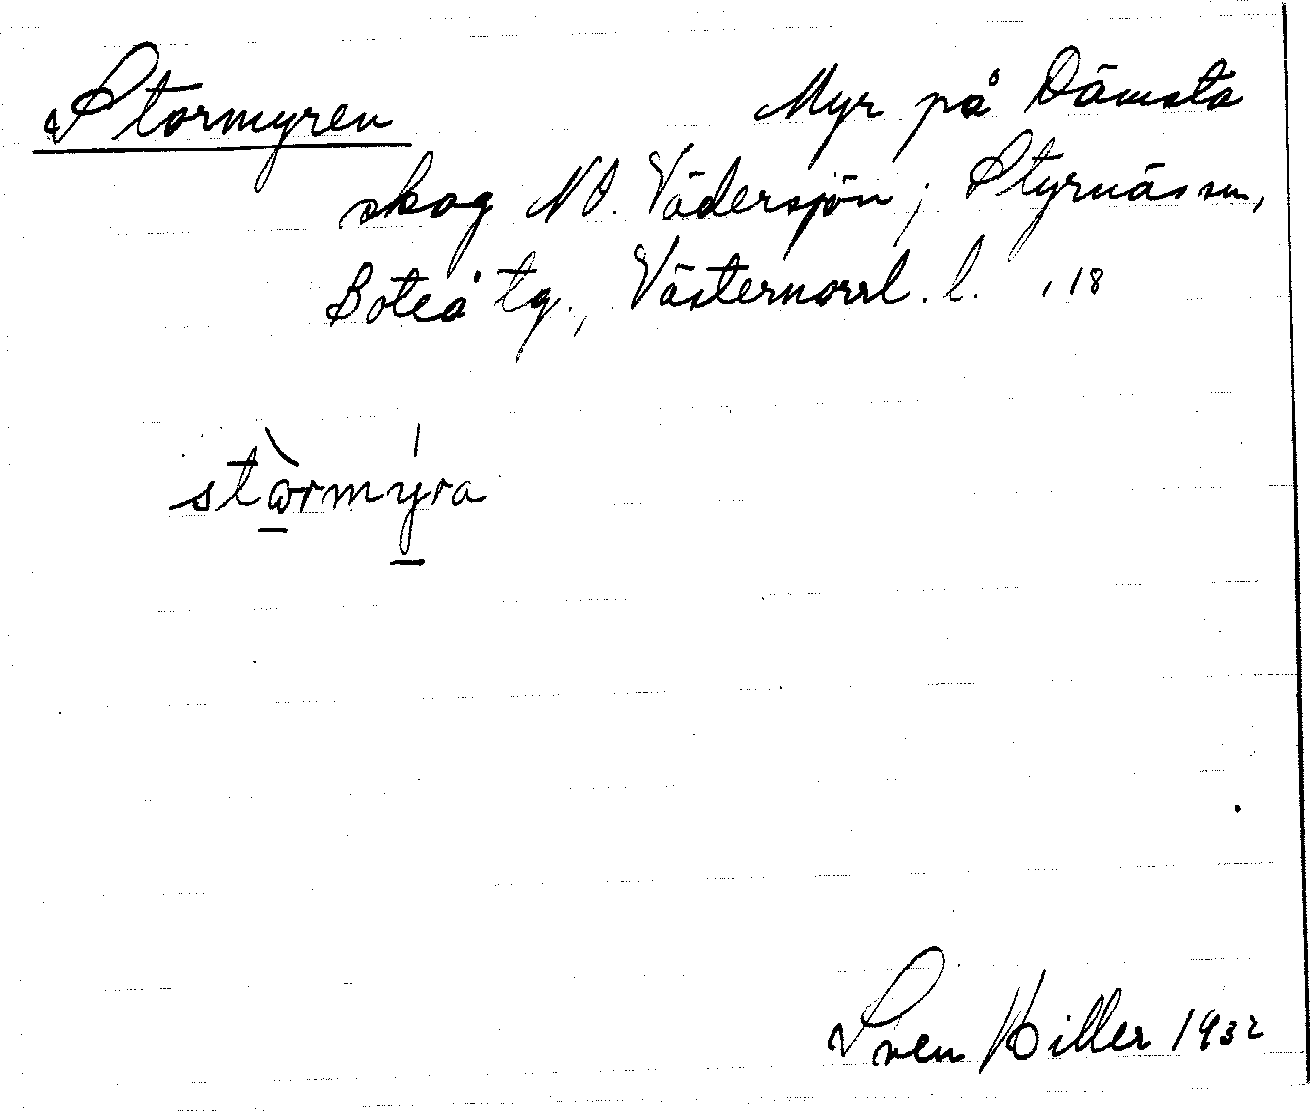 Stormyren Myr på Dämsta
skog NO. Vädersjön, Styrnäs sn,
Boteå tg., Västernorrl. l. , 18
stòrmýra
Sven Hiller 1932